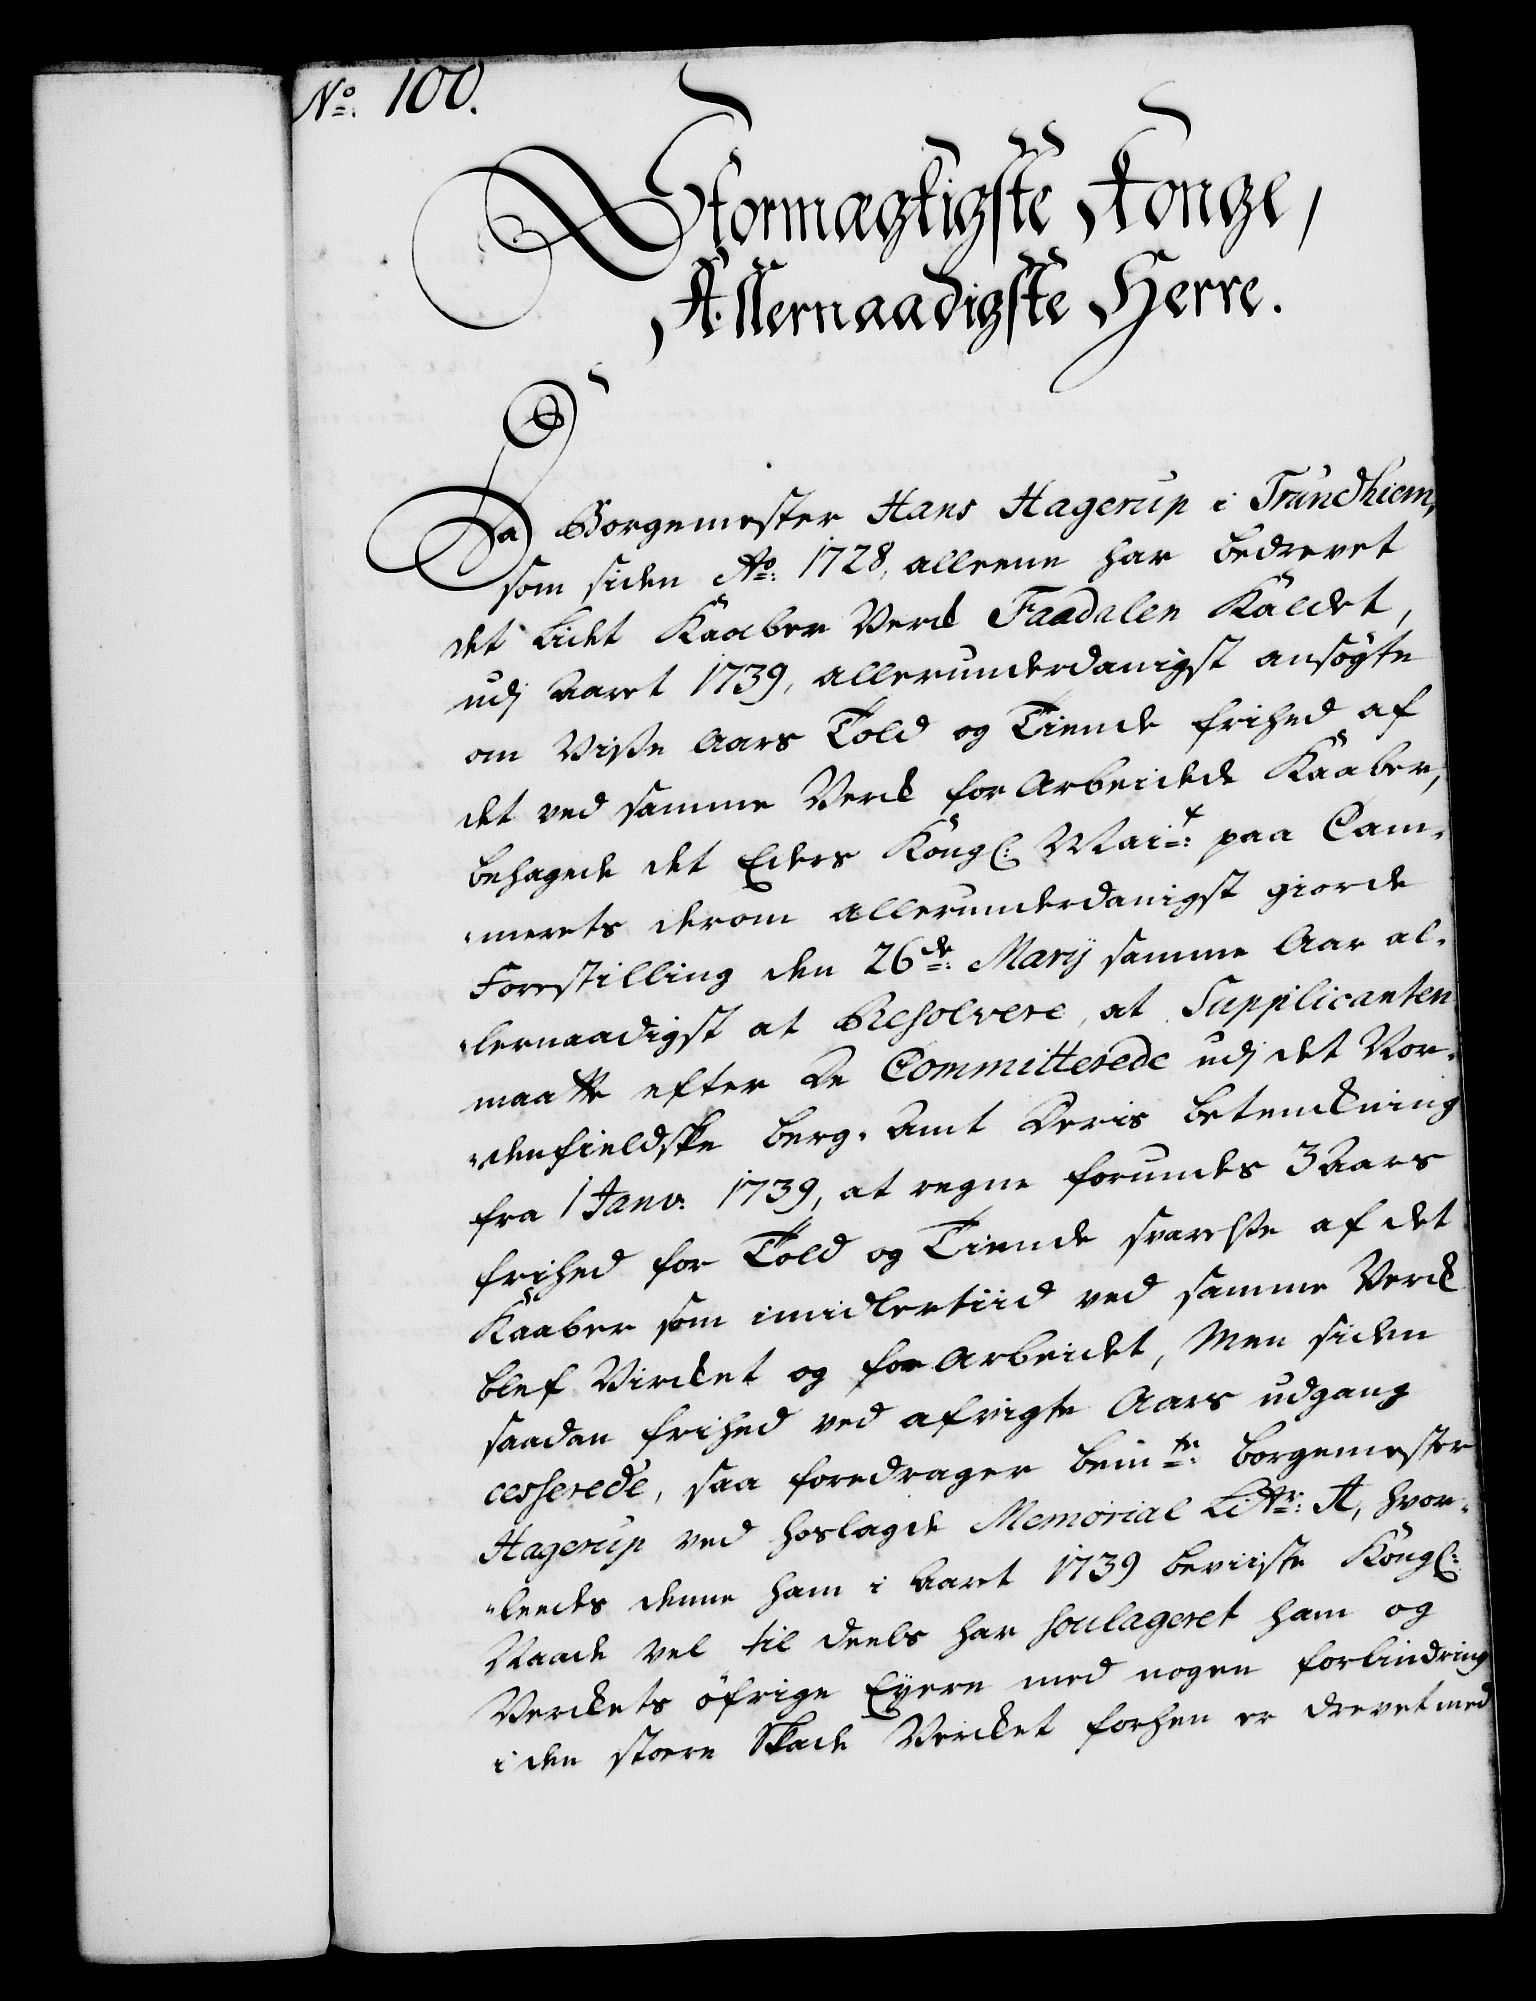 No: 100.
Stormægtigste Konge,
Allernaadigste Herre.
Da Borgemester Hans Hagerup i Trundhiem,
som siden Ao: 1728, alleene har bedrevet
det Lidet Kaaber Verck Faadalen Kaldet,
udj Aaret 1739, allerunderdanigst ansögte
om Visse Aars Told og Tiende frihed af
det ved samme Verck forarbeidede Kaaber,
behagede det Eders Kongl: Mait: paa Cam-
-merets derom allerunderdanigst giorde
Forestilling den 26de: Marij samme Aar al-
-lernaadigst at Resolvere, at Supplicanten
maatte efter De Committerede udj det Nor-
-denfieldske Berg-Amt Deris betenckning
fra 1 Janv: 1739, at regne forundes 3 Aars
frihed for Told og Tiende svarelse af det
Kaaber som imidlertiid ved samme Verck
blef Vircket og forarbeidet, Men siden
saadan frihed ved afvigte Aars udgang
cesserede, saa foredrager bem:te: Borgemester
Hagerup ved hoslagde Memorial Littr: A, hvor-
-leedes denne ham i Aaret 1739 beviiste Kongl:
Naade vel til deels har soulageret ham og
Verckets öfrige Eyere med nogen forlindring
i den stoere Skade Vercket forhen er drevet med